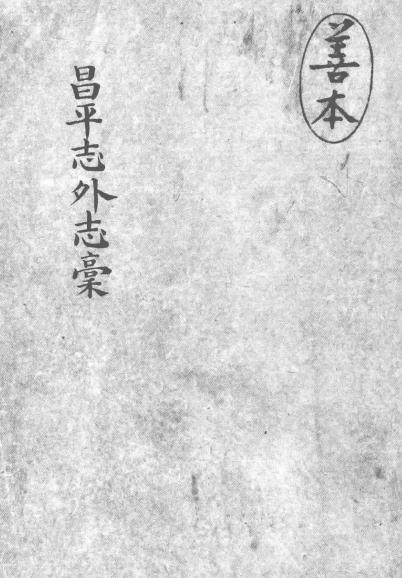 善本
昌平志外志稾